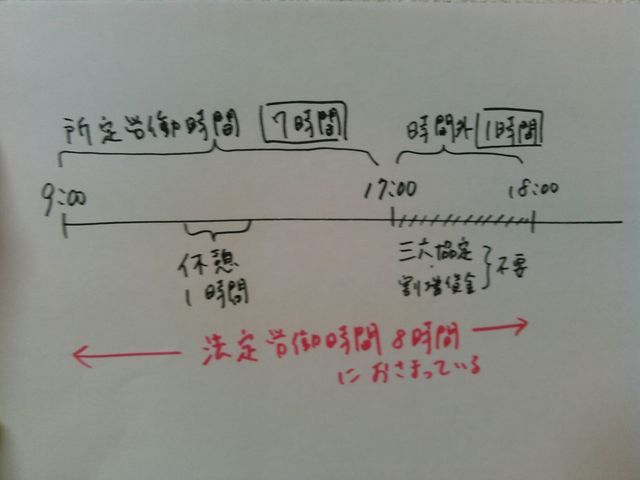 所定労働時間 7時間
時間外 1時間
9:00
17:00
18:00
休憩
1時間
三六協定
割増賃金
不要
法定労働時間 8時間
におさまっている